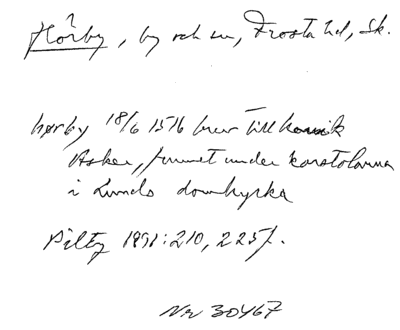 Hörby, by och sn, Frosta hd, Sk.
hørby 18/6 1516 brev till kanik
Asker, funnet under korstolarna
i Lunds domkyrka
1891:210, 225f.
Nr 30467